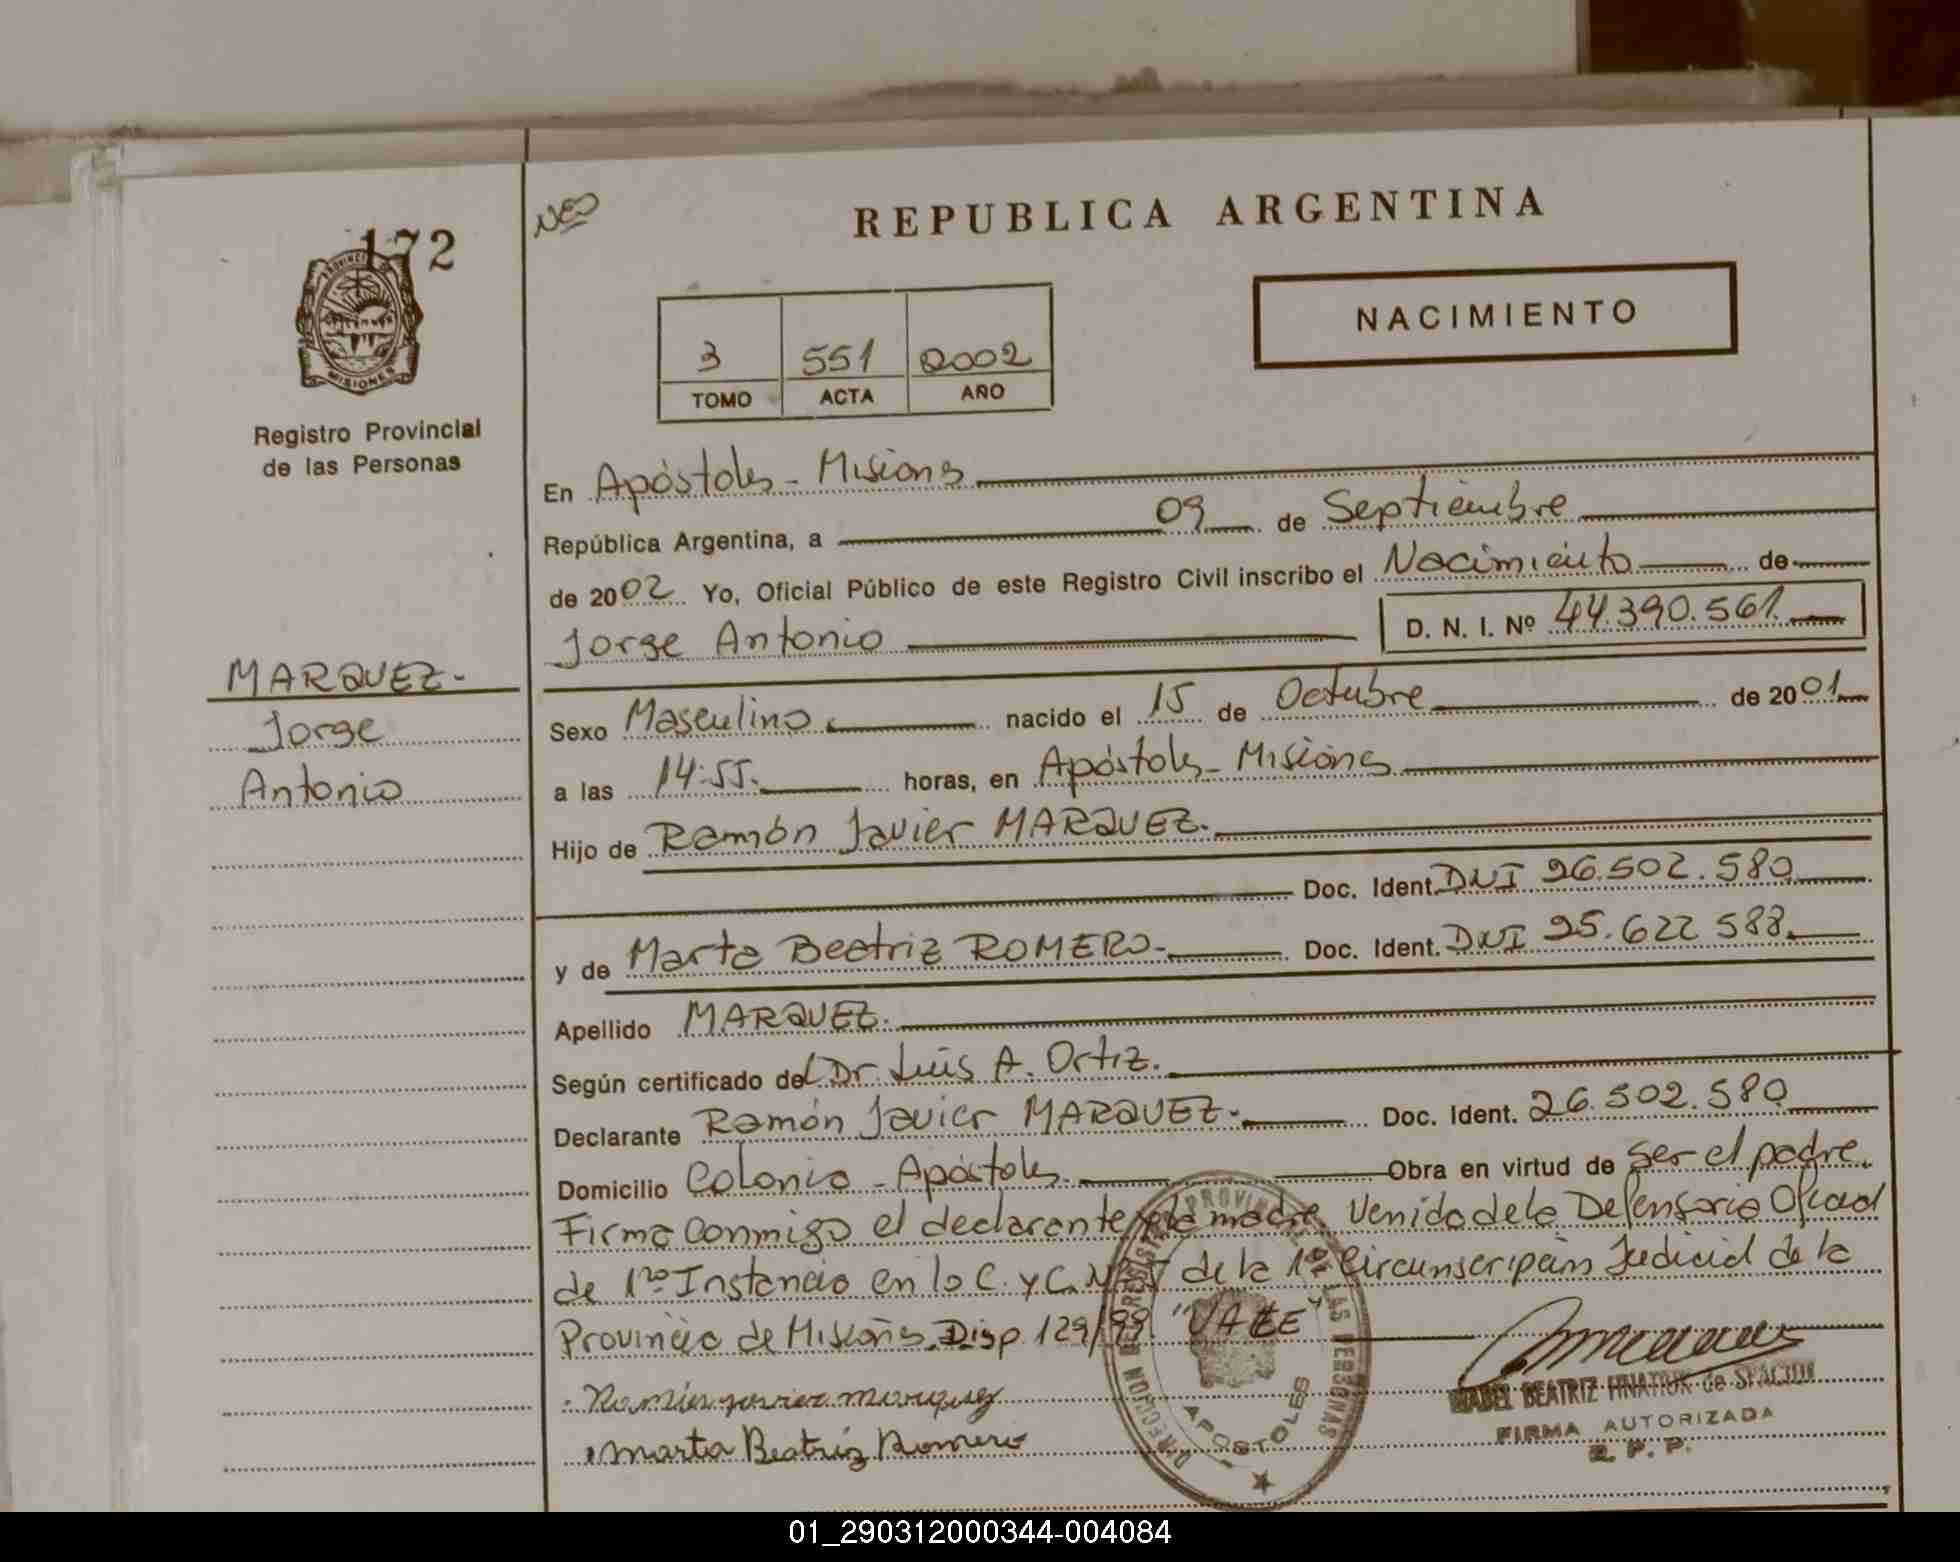 172
PROVINCIA DE
MISIONES
Registro Provincial
de las Personas
MARQUEZ-
Jorge
Antonio
NEO
REPUBLICA ARGENTINA
NACIMIENTO
3 551 2002
TOMO ACTA AÑO
En Apóstoles - Misiones
República Argentina, a 09 de Septiembre
de 2002 Yo, Oficial Público de este Registro Civil inscribo el Nacimiento de
Jorge Antonio D. N. I. Nº 44.390.561.
Sexo Masculino. nacido el 15 de Octubre de 2001
a las 14:55. horas, en Apóstoles - Misiones
Hijo de Ramón Javier MARQUEZ.
Doc. Ident. DNI 26.502.580
y de Marta Beatriz ROMERO- Doc. Ident. DNI 25.622 588.
Apellido MARQUEZ.
Según certificado del Dr. Luis A. Ortiz.
Declarante Ramón Javier MARQUEZ- Doc. Ident. 26.502.580
Domicilio Colonia - Apóstoles. Obra en virtud de ser el padre.
Firma conmigo el declarante y la madre. Venido de la Defensoria Oficial
de 1ra Instancia en lo C. y C. de la 1ra Circunscripción Judicial de la
Provincia de Misiones. Disp. 129/99. "VALE"
Ramón javier marquez
Marta Beatriz Romero
DIRECCION REGISTRO PROVINCIAL DE LAS PERSONAS
APOSTOLES
BEATRIZ de
FIRMA AUTORIZADA
R. P. P.
01_290312000344-004084